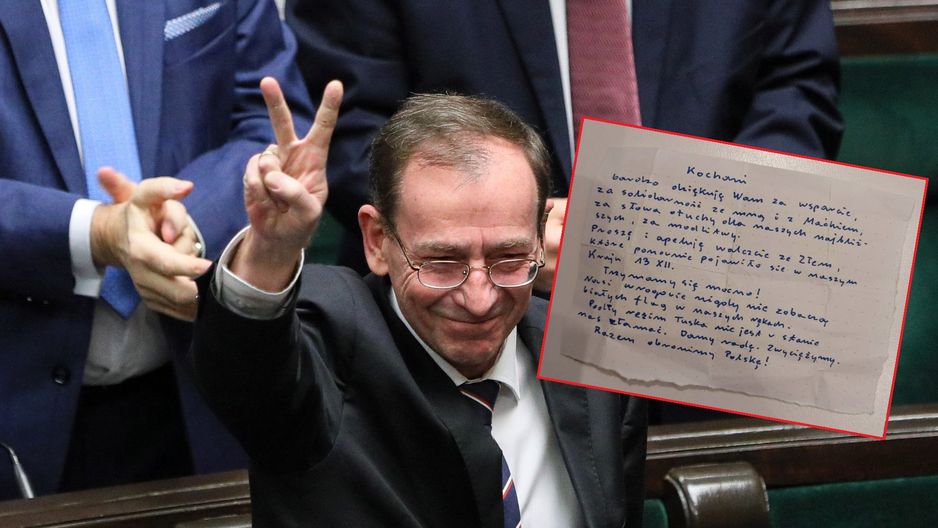 Kochani
bardzo dziękuję Wam za wsparcie,
za solidarność ze mną i z Maćkiem,
za słowa otuchy dla naszych najbliż-
szych i za modlitwy.
Proszę i apeluję walczcie ze Złem,
które ponownie pojawiło się w naszym
Kraju 13 XII.
Trzymamy się mocno!
Nasi wrogowie nigdy nie zobaczą
białych flag w naszych rękach.
Podły reżim Tuska nie jest w stanie
nas złamać. Damy radę. Zwyciężymy.
Razem obronimy Polskę!